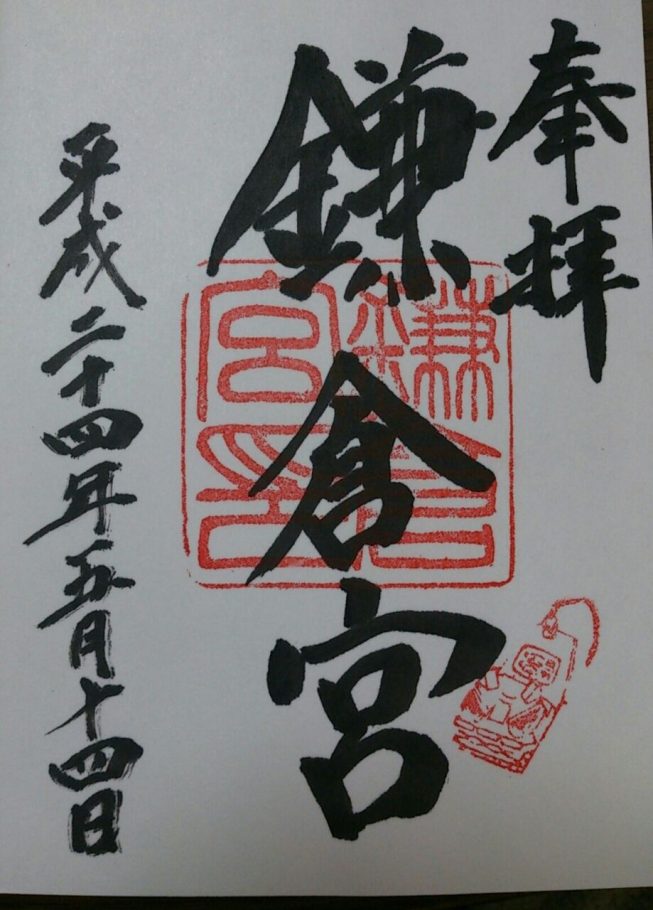 奉拝
鎌倉宮
鎌倉宮印
平成二十四年五月十四日